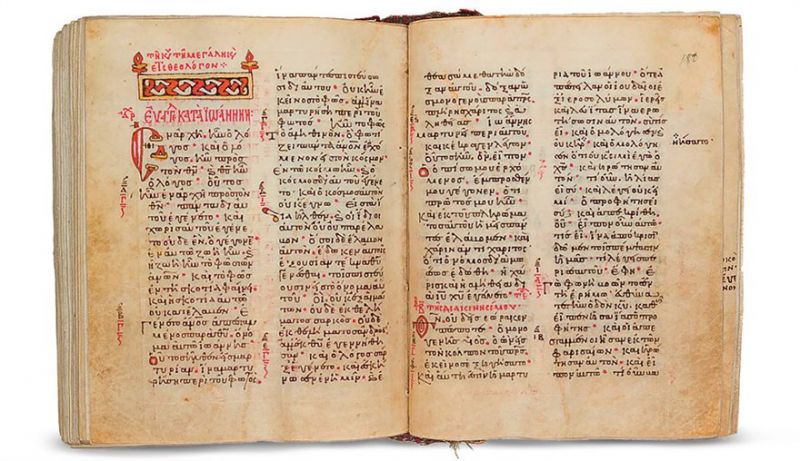 τῇ κυ τῇ μεγάλη κυ
ἐπι θεολόγον
Εὐαγγ κατὰ Ἰωάννην
Ἐν ἀρχῇ ἦν ὁ λό
γος· καὶ ὁ λό
γος ἦν πρὸς
τὸν θν· καὶ θς ἦν
ὁ λόγος· οὗτος
ἦν ἐν ἀρχῇ πρὸς τὸν
θν· πάντα δι' αὐ
τοῦ ἐγένετο· καὶ
χωρὶς αὐτοῦ ἐγένε
το οὐδὲ ἓν ὃ γέγονεν
ἐν αὐτῷ ζωὴ ἦν· καὶ
ἡ ζωὴ ἦν τὸ φῶς τῶν
ἀνων· καὶ τὸ φῶς ἐν
τῇ σκοτίᾳ φαίνει
καὶ ἡ σκοτία αὐτὸ
οὐ κατέλαβεν· Ἐ
γένετο ἄνος ἀπεσταλ
μένος παρὰ θυ· ὄνο
μα αὐτῷ ἰωάννης
Οὗτος ἦλθεν εἰς μαρ
τυρίαν· ἵνα μαρτυ
ρήσῃ περὶ τοῦ φωτός·
ἵνα πάντες πιστεύσω
σι δι' αὐτοῦ· οὐκ ἦν ἐ
κεῖνος τὸ φῶς· ἀλλ' ἵνα
μαρτυρήσῃ περὶ τοῦ
φωτός· ἦν τὸ φῶς
τὸ ἀληθινόν· ὃ φωτί
ζει πάντα ἄνον ἐρχό
μενον εἰς τὸν κόσμον·
ἐν τῷ κόσμῳ ἦν· καὶ ὁ
κόσμος δι' αὐτοῦ ἐγένε
το· καὶ ὁ κόσμος αὐτὸν
οὐκ ἔγνω· Εἰς τὰ ἴ
δια ἦλθεν· καὶ οἱ ἴδιοι
αὐτὸν οὐ παρέλα
βον· ὅσοι δὲ ἔλαβον
αὐτόν· ἔδωκεν αὐτοῖς
ἐξουσίαν τέκνα θυ
γενέσθαι· τοῖς πιστεύ
ουσιν εἰς τὸ ὄνομα αὐ
τοῦ· Οἳ οὐκ ἐξ αἱμά
των· οὐδὲ ἐκ θελή
ματος σαρκός· οὐδὲ
ἐκ θελήματος ἀνδρός·
ἀλλ' ἐκ θυ ἐγεννήθη
σαν· καὶ ὁ λόγος σὰρξ
ἐγένετο· καὶ ἐσκή
νωσεν ἐν ἡμῖν· καὶ ἐ
θεασάμεθα τὴν δό
ξαν αὐτοῦ· δόξαν ὡς
μονογενοῦς παρὰ πρς
πλήρης χάριτος καὶ ἀ
ληθείας· Ἰωάννης
μαρτυρεῖ περὶ αὐτοῦ
καὶ κέκραγε λέγων·
οὗτος ἦν ὃν εἶπον
ὁ ὀπίσω μου ἐρχό
μενος· ἔμπροσθέν
μου γέγονεν· ὅτι
πρῶτός μου ἦν·
καὶ ἐκ τοῦ πληρώμα
τος αὐτοῦ ἡμεῖς πάν
τες ἐλάβομεν· καὶ
χάριν ἀντὶ χάριτος·
ὅτι ὁ νόμος διὰ μω
σέως ἐδόθη· ἡ χά
ρις καὶ ἡ ἀλήθεια δι
ὰ ιυ χυ ἐγένετο·
τῆς διακινησίμου
Θν οὐδεὶς ἑώρακε
πώποτε· ὁ μονο
γενὴς υς· ὁ ὢν εἰς
τὸν κόλπον τοῦ πρς
ἐκεῖνος ἐξηγήσατο·
καὶ αὕτη ἐστὶν ἡ μαρτυ
ρία τοῦ ἰωάννου· ὅτε ἀ
πέστειλαν οἱ ιουδαῖοι ἐ
ξ ἱεροσολύμων· ἱερεῖς
καὶ λευίτας ἵνα ἐρω
τήσωσιν αὐτόν· σὺ τίς
εἶ· καὶ ὡμολόγησε
οὐκ καὶ ὡμολόγη
σεν ὅτι οὐκ εἰμὶ ἐγὼ ὁ
χς· καὶ ἠρώτησαν αὐ
τόν· τί οὖν ἠλίας
εἶ σύ· καὶ λέγει οὐκ εἰ
μί· ὁ προφήτης εἶ
σύ· καὶ ἀπεκρίθη
οὔ· εἶπον οὖν αὐτῷ τίς
εἶ· ἵνα ἀπόκρισιν
δῶμεν τοῖς πέμψασιν
ἡμᾶς· τί λέγεις πε
ρὶ σεαυτοῦ· ἔφη· ἐ
γὼ φωνὴ βοῶντος ἐν
τῇ ἐρήμῳ· εὐθύνα
τε τὴν ὁδὸν κυ· καθ
ὼς εἶπεν ησαΐας ὁ προ
φήτης· καὶ οἱ ἀπε
σταλμένοι ἦσαν ἐκ τῶν
φαρισαίων· καὶ ἠρώ
τησαν αὐτόν· καὶ εἶ
πον αὐτῷ· τί οὖν βα